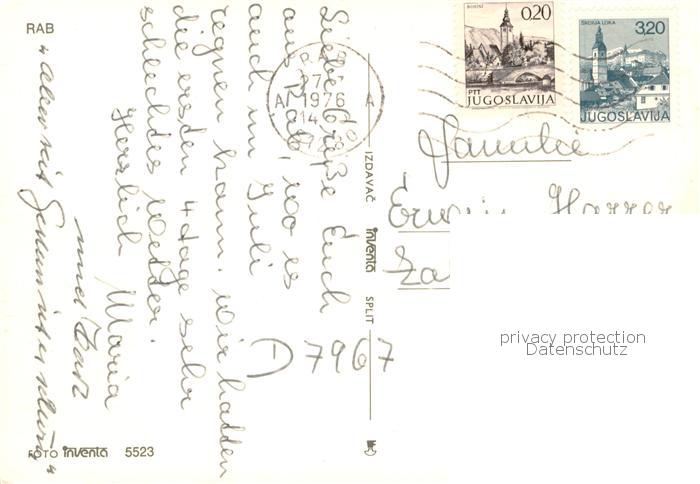 RAB
Liebe Grüße Euch
aus Rab, wo es
auch im Juli
regnen kann. Wir hatten
die ersten 4 Tage sehr
schlechtes Wetter.
Herzlich Maria
und
"aber mit
FOTO inventa 5523
IZDAVAČ inventa SPLIT
1976
14
BOHINJ
0.20
PTT
JUGOSLAVIJA
ŠKOFJA LOKA
3,20
JUGOSLAVIJA
Familie
Erwin Harrer
Za
D 7967
privacy protection
Datenschutz